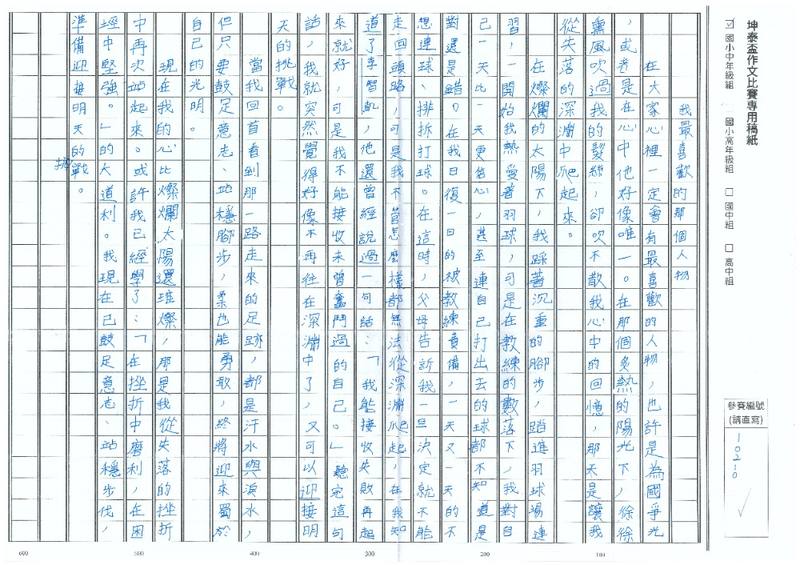 坤泰盃作文比賽專用稿紙
☑國小中年級組 國小高年級組 □國中組 □高中組
參賽編號
(請直寫)
10210
我最喜歡的那個人物
在大家心裡一定會有最喜歡的人物，也許是為國爭光
，或者是在心中他好像唯一。在那個炙熱的陽光下，徐徐
薰風吹過我的髮梢，卻吹不散我心中的回憶，那天是讓我
從失落的深淵中爬起來。
在燦爛的太陽下，我踩著沉重的腳步，踏進羽球場連
習，一開始我熱愛著羽球，可是在教練的數落下，我對自
己一天比一天更告心，甚至連自己打出去的球都不知道是
對還是錯？在我日復一日的被教練責備，一天又一天的不
想連球、排拆打球。在這時，父母告訴我一旦決定就不能
走回頭路，可是我不管怎麼樣都無法從深淵爬起，在我知
道了李智凱，他還曾經說過一句話：「我能接收失敗再起
來就好，可是我不能接收未曾奮鬥過的自己。」聽完這句
話，我就突然覺得好像不再往在深淵中了，又可以迎接明
天的挑戰。
當我回首看到那一路走來的足跡，都是汗水與淚水，
但只要鼓足意志、站穩腳步，柔也能勇敢，終將迎來屬於
自己的光明。
現在我的心比燦爛太陽還璀燦，那是我從失落的挫折
中再次站起來。或許我已經學了：「在挫折中磨利，在困
境中堅強。」的大道利。我現在已鼓足意志、站穩步伐，
準備迎接明天的挑戰。
100
200
300
400
500
600